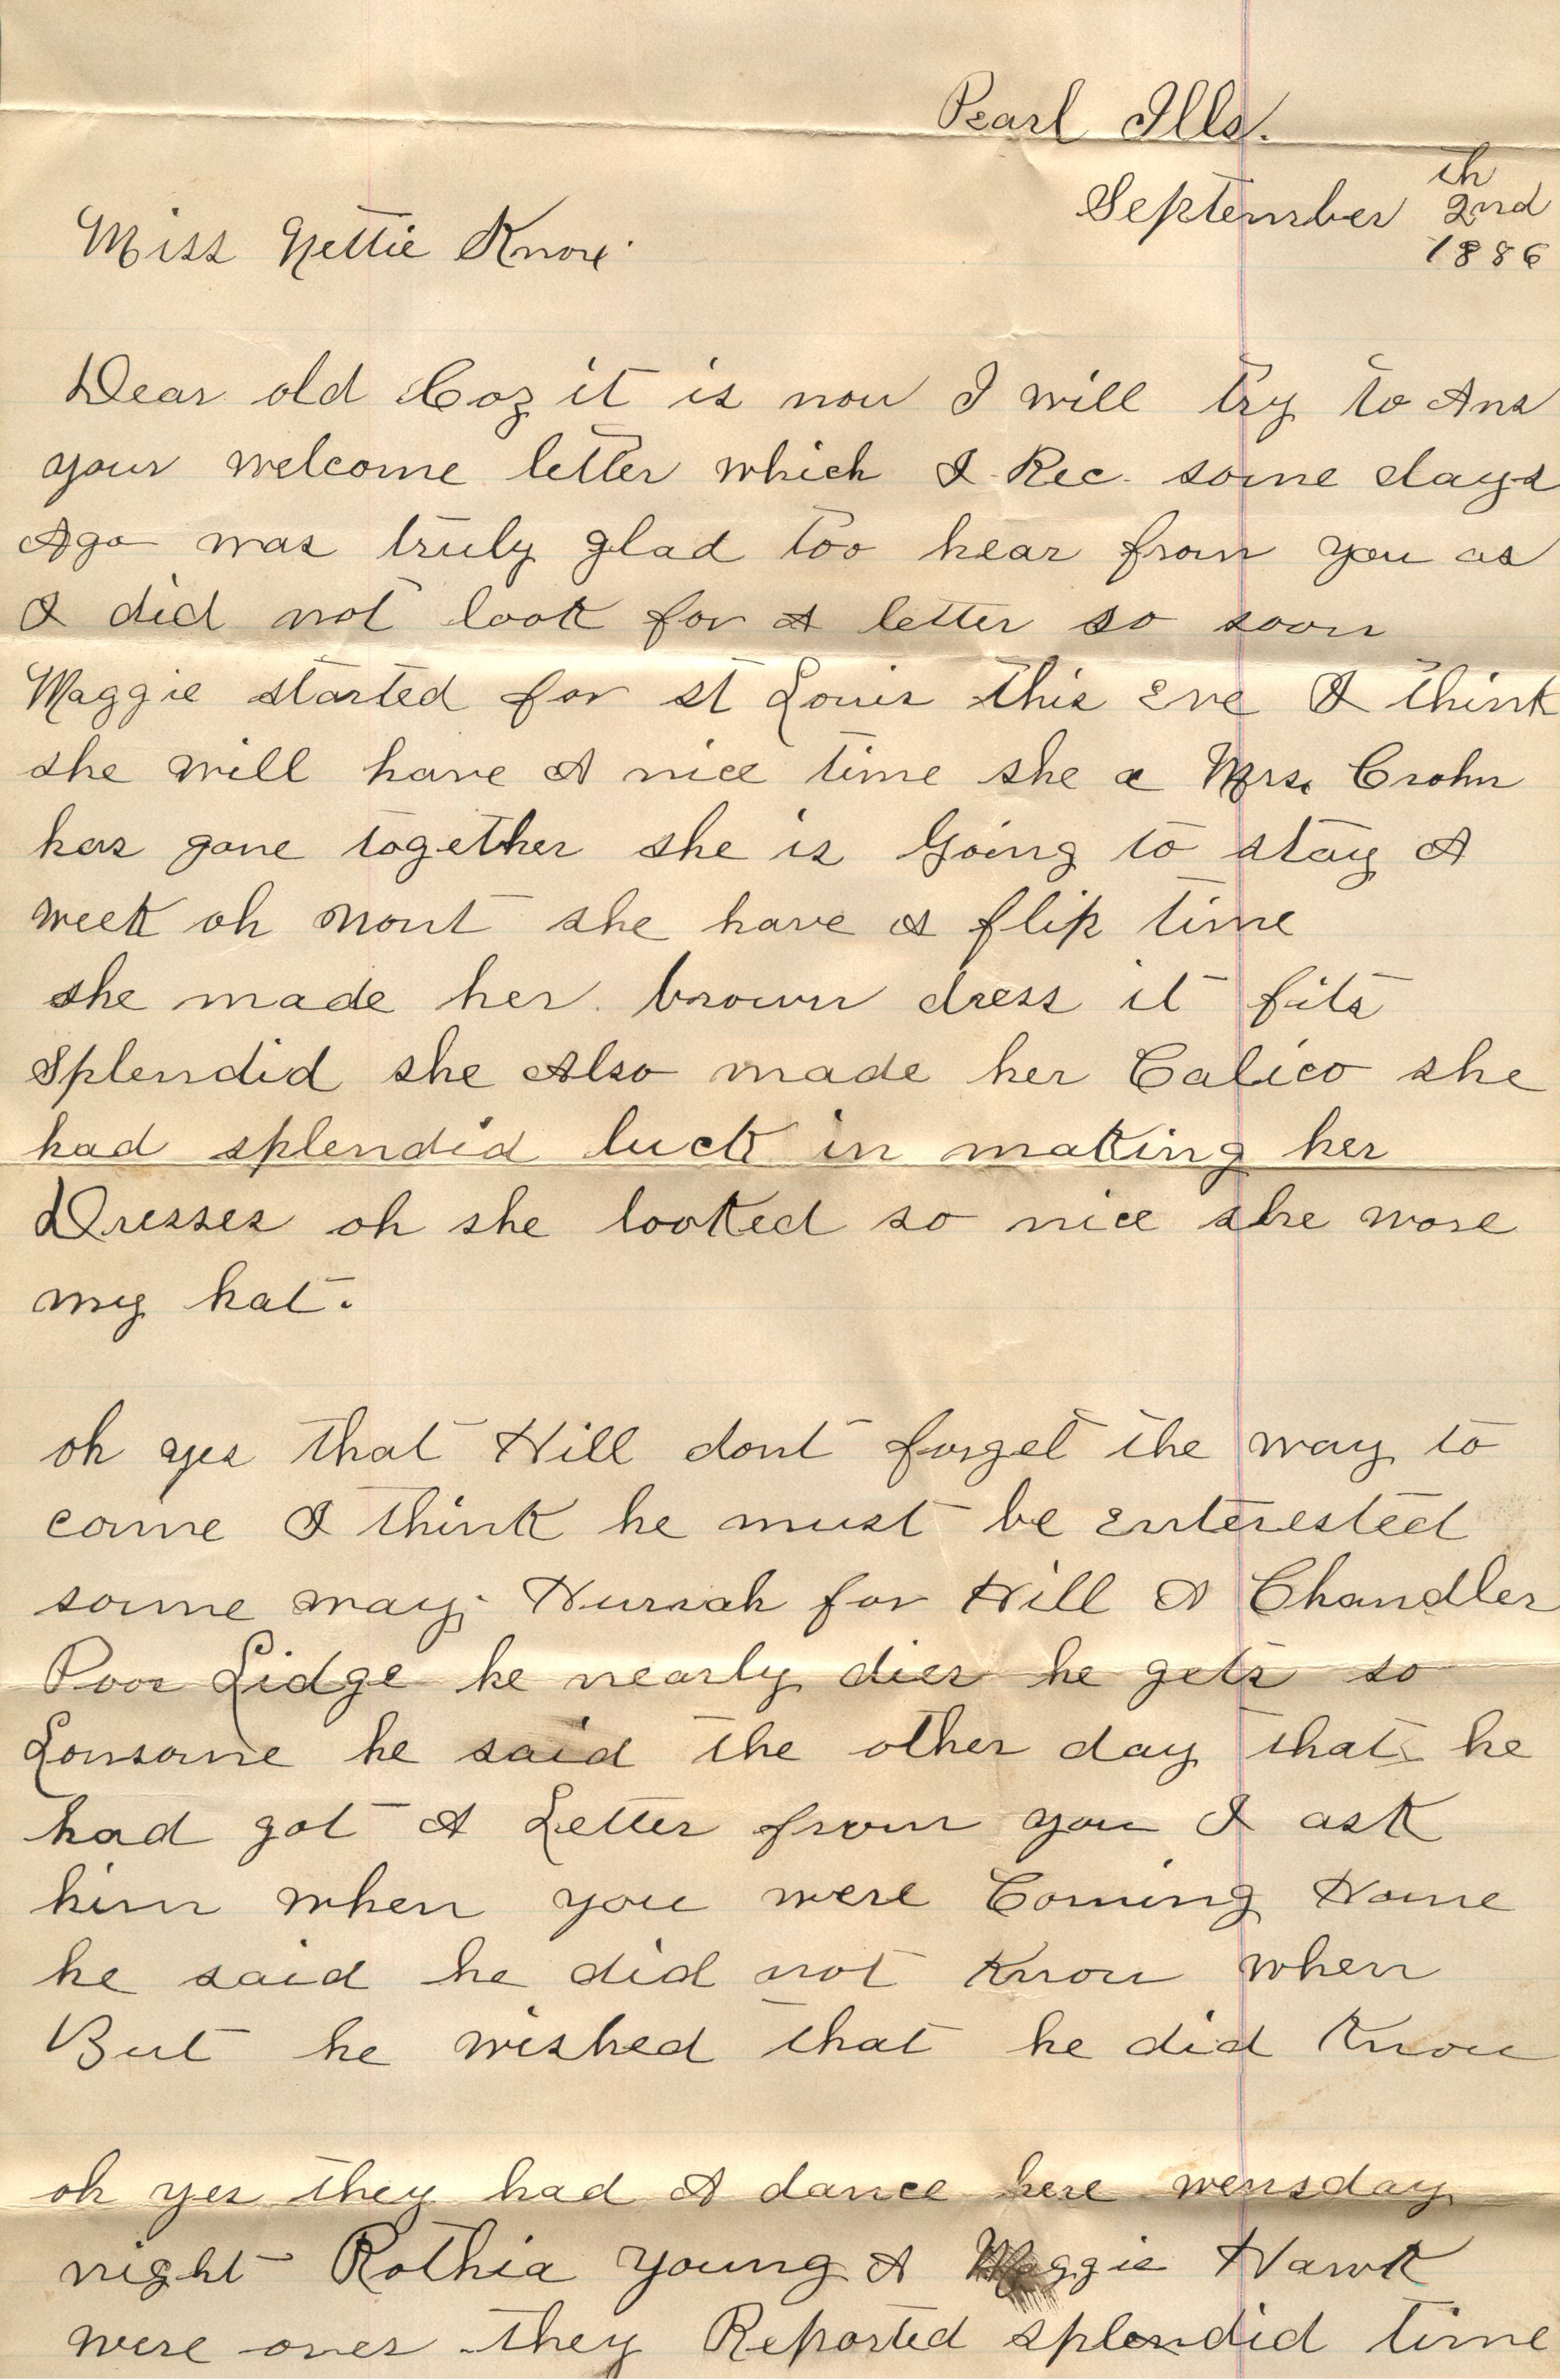 Pearl Ills.
September 2nd th
1886
Miss Nettie Knox
Dear old Coz it is now I will try to Ans
your welcome letter which I Rec. some days
Ago was truly glad too hear from you as
I did not look for A letter so soon
Maggie started for st Louis this Eve I think
she will have A nice time she & Mrs. Crohn
has gone together she is Going to stay A
week oh wont she have A flip time
she made her brown dress it fits
Splendid she Also made her Calico she
had splendid luck in making her
Dresses oh she looked so nice she wore
my hat.
oh yes that Hill dont forget the way to
come I think he must be Enterested
some way. Hurrah for Hill A Chandler
Poor Lidge he nearly dies he gets so
Lonsome he said the other day that he
had got A Letter from you I ask
him when you were Coming Home
he said he did not Know when
But he wished that he did Know
oh yes they had A dance here wensday
night Rothia Young A Maggie Hawk
were over they Reported splendid time